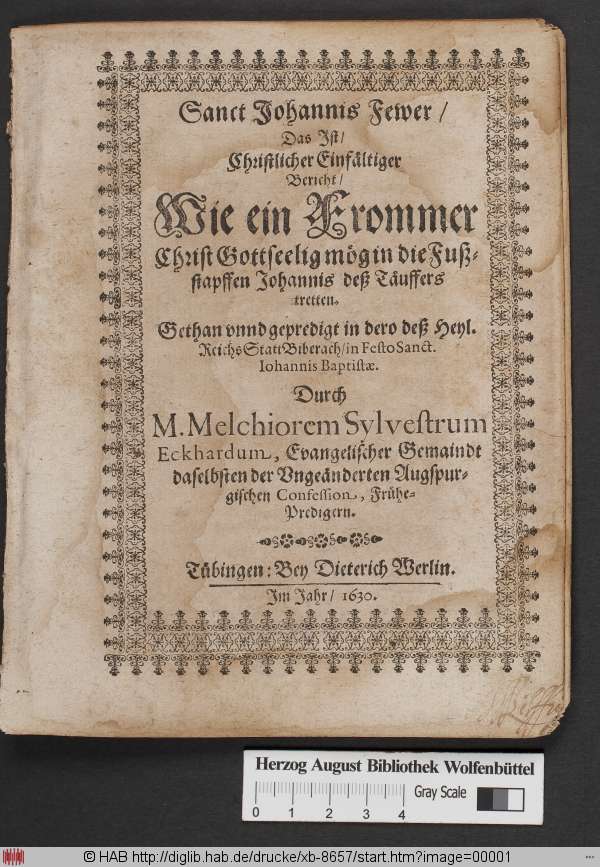 Sanct Johannis Fewer /
Das Ist /
Christlicher Einfältiger
Bericht /
Wie ein Frommer
Christ Gottseelig mög in die Fuß-
stapffen Johannis deß Täuffers
tretten.
Gethan vnnd gepredigt in dero deß Heyl.
Reichs Statt Biberach / in Festo Sanct.
Iohannis Baptistæ.
Durch
M. Melchiorem Sylvestrum
Eckhardum, Evangelischer Gemaindt
daselbsten der Vngeänderten Augspur-
gischen Confession, Frühe-
Predigern.
Tübingen: Bey Dieterich Werlin.
Im Jahr / 1630.
Herzog August Bibliothek Wolfenbüttel
0 1 2 3 4 Gray Scale
© HAB http://diglib.hab.de/drucke/xb-8657/start.htm?image=00001